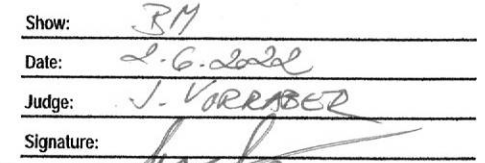 Show: BM
Date: 2.6.2022
Judge: J. VORRABER
Signature: